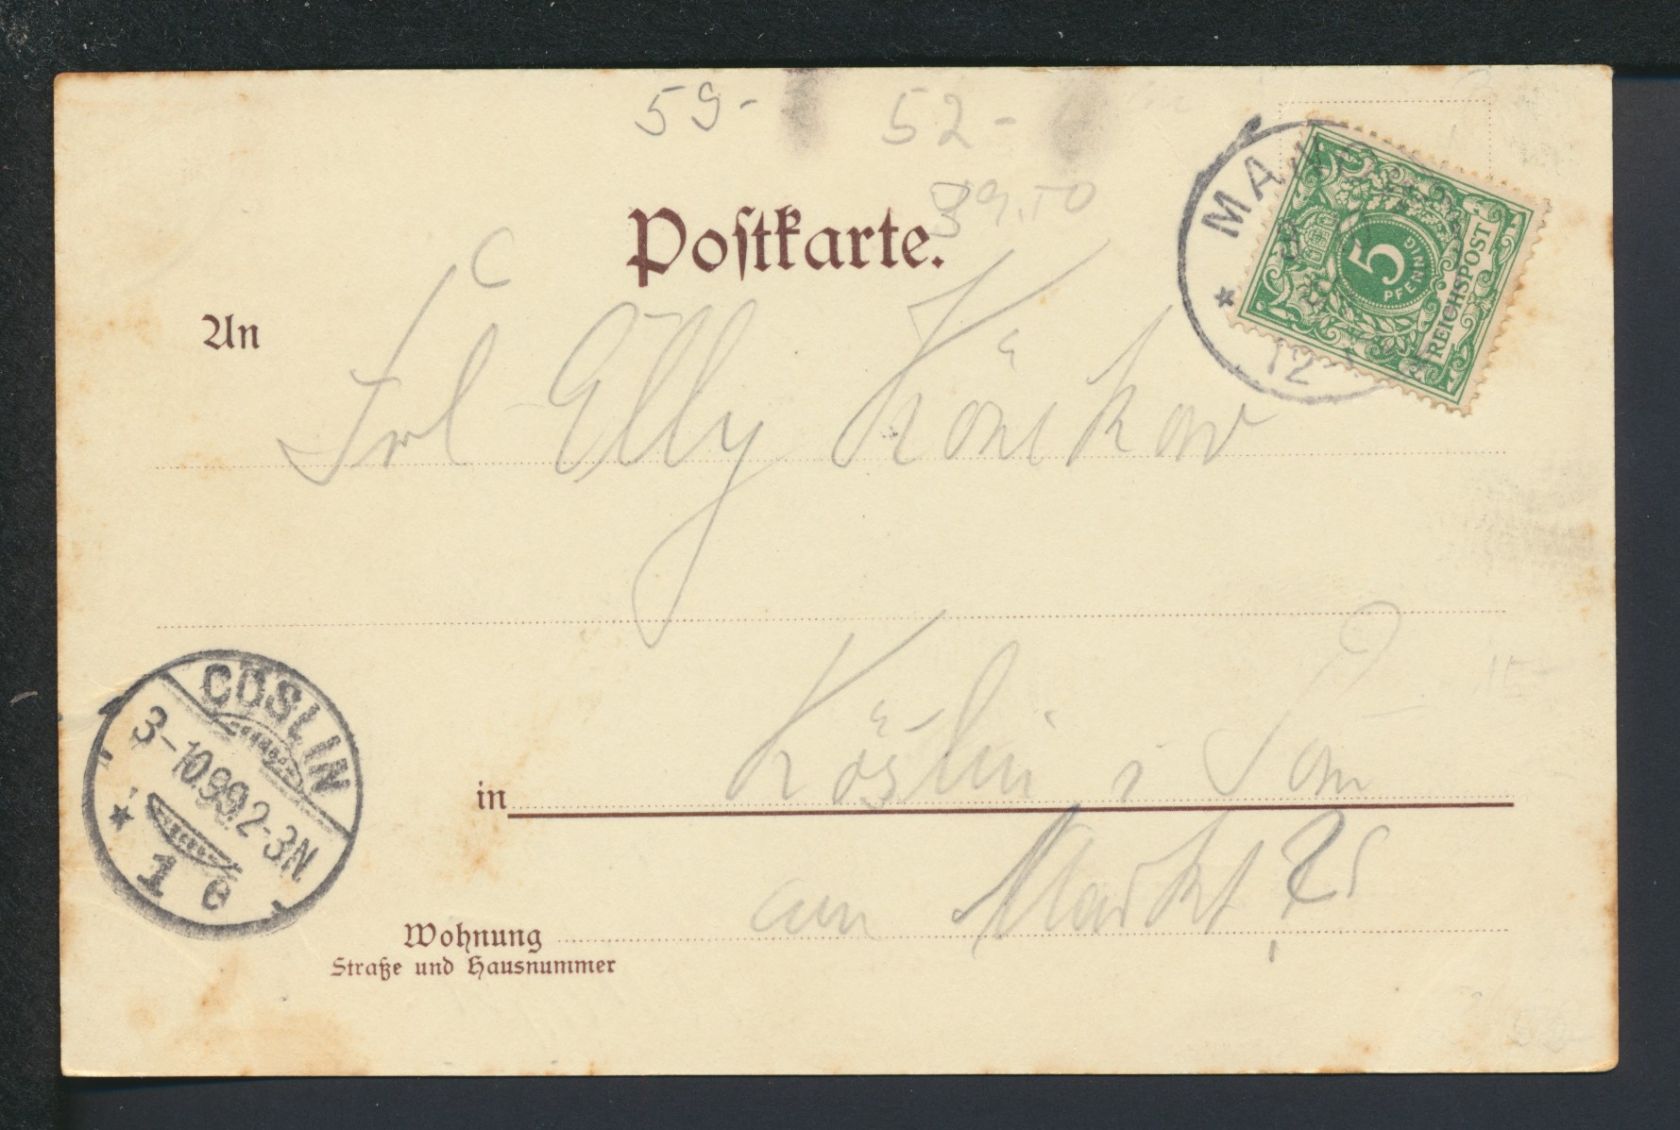 59-
52-
39.50
Postkarte.
MA
12-1
5
PFENNIG
REICHSPOST
An
Frl Elly
Köslin i Pom
in
am Markt
Wohnung
Straße und Hausnummer
CÖSLIN
3-10.99.2-3N
1 e